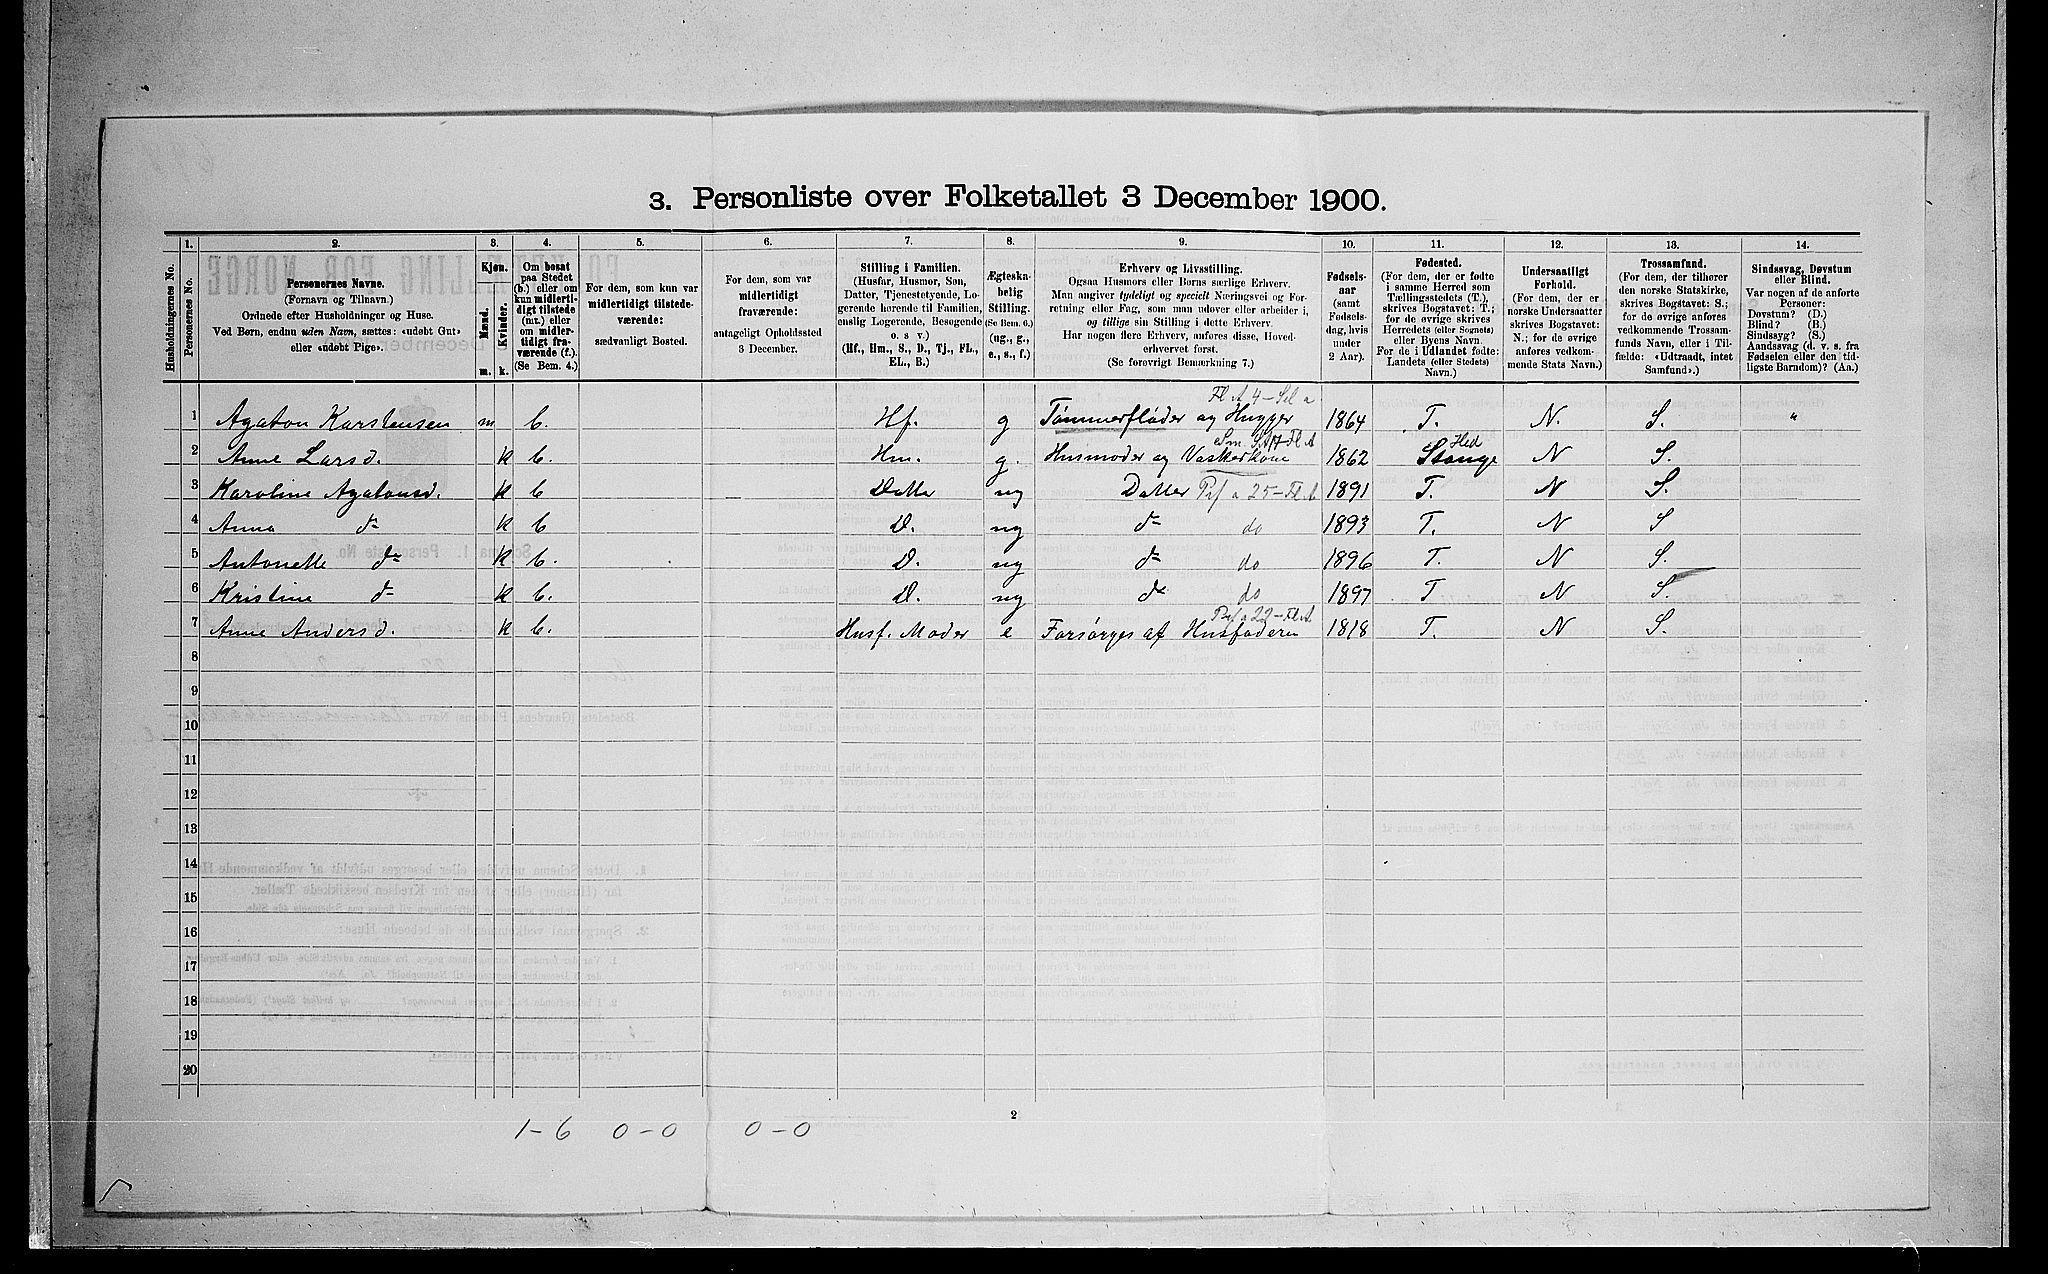 3. Personliste over Folketallet 3 December 1900.
1. 2. 3. 4. 5. 6. 7. 8. 9. 10. 11. 12. 13. 14.
Husholdningernes No.
Personernes No.
Personernes Navne.
(Fornavn og Tilnavn.)
Ordnede efter Husholdninger og Huse.
Ved Børn, endnu uden Navn, sættes: «udøbt Gut»
eller «udøbt Pige».
Kjøn.
Mænd.
Kvinder.
m. k.
Om bosat
paa Stedet
(b.) eller om
kun midlerti-
digt tilstede
(mt.) eller
om midler-
tidigt fra-
værende (f.).
(Se Bem. 4.)
For dem, som kun var
midlertidigt tilstede-
værende:
sædvanligt Bosted.
For dem, som var
midlertidigt
fraværende:
antageligt Opholdssted
3 December.
Stilling i Familien.
(Husfar, Husmor, Søn,
Datter, Tjenestetyende, Lo-
gerende hørende til Familien,
enslig Logerende, Besøgende
o. s. v.)
(Hf., Hm., S., D., Tj., FL.,
EL., B.)
Ægteska-
belig
Stilling.
(Se Bem. 6.)
(ug., g.,
e., s., f.)
Erhverv og Livsstilling.
Ogsaa Husmors eller Børns særlige Erhverv.
Man angiver tydeligt og specielt Næringsvei og For-
retning eller Fag, som man udøver eller arbeider i,
og tillige sin Stilling i dette Erhverv.
Har nogen flere Erhverv, anføres disse, Hoved-
erhvervet først.
(Se forøvrigt Bemærkning 7.)
Fødsels-
aar
(samt
Fødsels-
dag, hvis
under
2 Aar).
Fødested.
(For dem, der er fødte
i samme Herred som
Tællingsstedets (T.),
skrives Bogstavet: T.;
for de øvrige skrives
Herredets (eller Sognets)
eller Byens Navn.
For de i Udlandet fødte:
Landets (eller Stedets)
Navn.)
Undersaatligt
Forhold.
(For dem, der er
norske Undersaatter
skrives Bogstavet:
N.; for de øvrige
anføres vedkom-
mende Stats Navn.)
Trossamfund.
(For dem, der tilhører
den norske Statskirke,
skrives Bogstavet: S.;
for de øvrige anføres
vedkommende Trossam-
funds Navn, eller i Til-
fælde: «Udtraadt, intet
Samfund».)
Sindssvag, Døvstum
eller Blind.
Var nogen af de anførte
Personer:
Døvstum? (D.)
Blind? (B.)
Sindssyg? (S.)
Aandssvag (d. v. s. fra
Fødselen eller den tid-
ligste Barndom)? (Aa.)
1 Agaton Karstensen m b. Hf. g Tømmerfløder og Hugger 1864 T. N. S. "
2 Anne Larsd. k b. Hm. g. Husmoder og Vaskerkone 1862 Stange Hed N S.
3 Karoline Agatonsd. k b Datter ug Datter 1891 T. N S.
4 Anna do k b D. ug do do 1893 T. N S
5 Antonette do k b. D. ug do do 1896 T. N S.
6 Kristine do k b. D. ug do do 1897 T N S.
7 Anne Andersd. k b. Husf. Moder e Forsørges af Husfaderen 1818 T. N S.
8
9
10
11
12
13
14
15
16
17
18
19
20
2
1-6 0-0 0-0